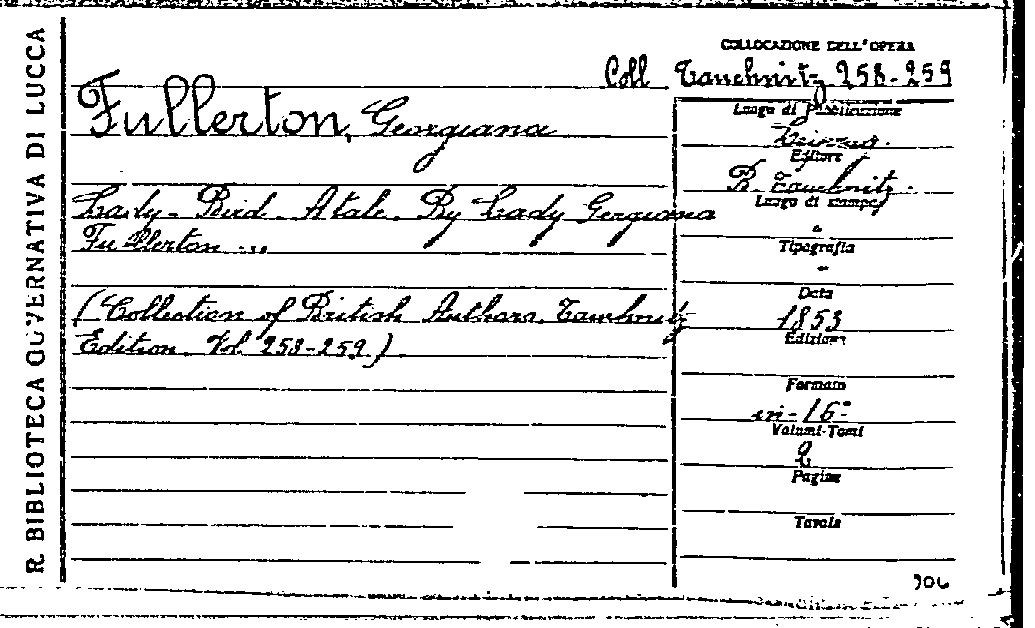 R. BIBLIOTECA GOVERNATIVA DI LUCCA
COLLOCAZIONE DELL'OPERA
Coll Tauchnitz 258-259
Fullerton, Georgiana
Lady-Bird. A tale. By Lady Gergiana
Fullerton ...
(Collection of British Authors. Tauchnitz
Edition. Vol. 258-259.)
Luogo di pubblicazione
Leipzig.
Editore
B. Tauchnitz.
Luogo di stampa
"
Tipografia
"
Data
1853
Edizione
Formato
in-16°
Volumi-Tomi
2
Pagine
Tavole
906